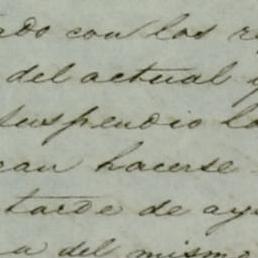 ado con los re
del actual y
suspendio la
can hacerse
tarde de ay
a del mismo